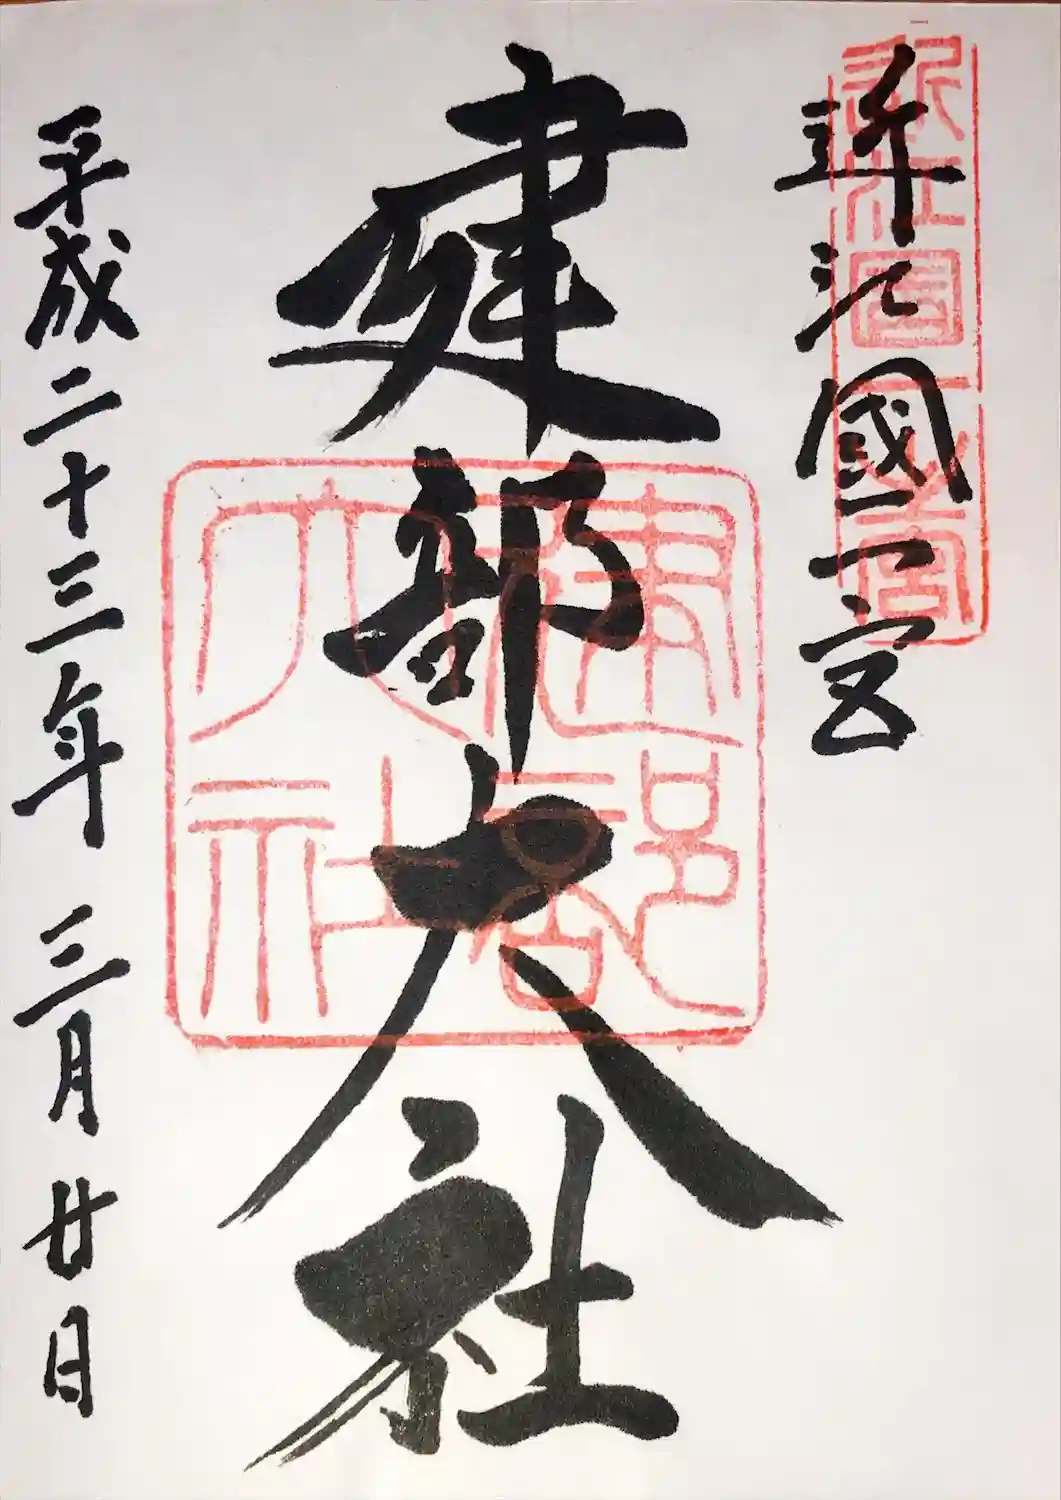 近江國一宮
近江國一之宮
建部大社
建部大社
平成二十三年 三月廿日